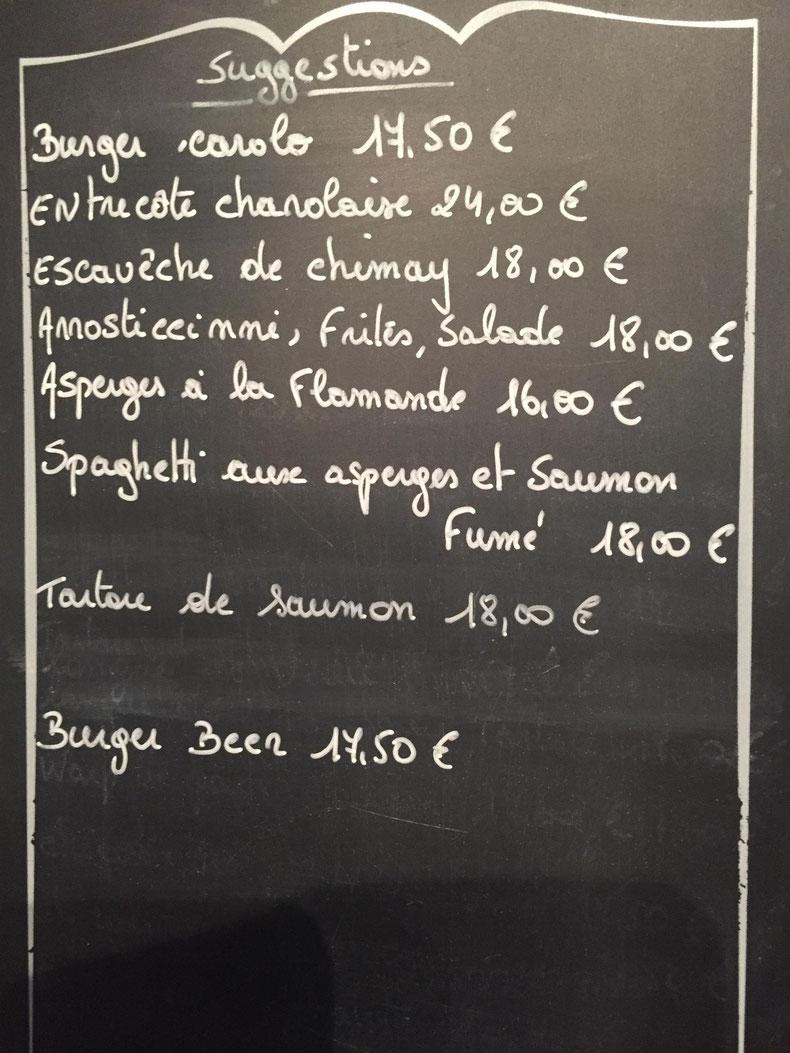 Suggestions
Burger carolo 17.50 €
Entrecôte charolaise 24,00 €
Escavêche de chimay 18,00 €
Arrosticcinni, Frites, Salade 18,00 €
Asperges à la Flamande 16,00 €
Spaghetti aux asperges et Saumon
Fumé 18,00 €
Tartare de saumon 18,00 €
Burger Beer 17,50 €